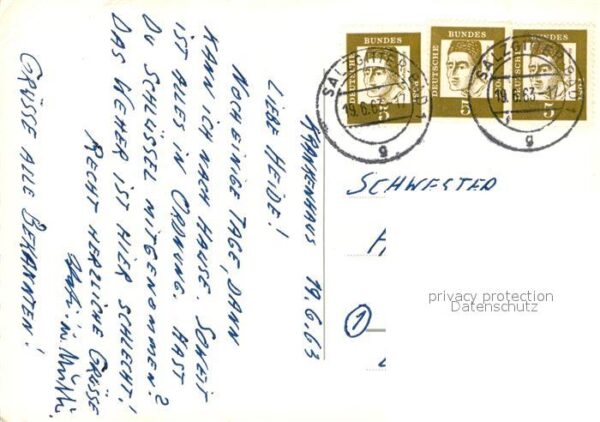 KRANKENHAUS 19.6.63
LIEBE HEIDE!
NOCH EINIGE TAGE, DANN
KANN ICH NACH HAUSE. SOWEIT
IST ALLES IN ORDNUNG. HAST
DU SCHLÜSSEL MITGENOMMEN?
DAS WETTER IST HIER SCHLECHT!
RECHT HERZLICHE GRÜSSE
GRÜSSE ALLE BEKANNTEN!
DEUTSCHE BUNDESPOST
5
DEUTSCHE BUNDESPOST
5
DEUTSCHE BUNDESPOST
5
SALZGITTER-BAD 1
19.6.63.-17
g
SALZGITTER-BAD 1
19.6.63.-17
g
SCHWESTER
1
privacy protection
Datenschutz